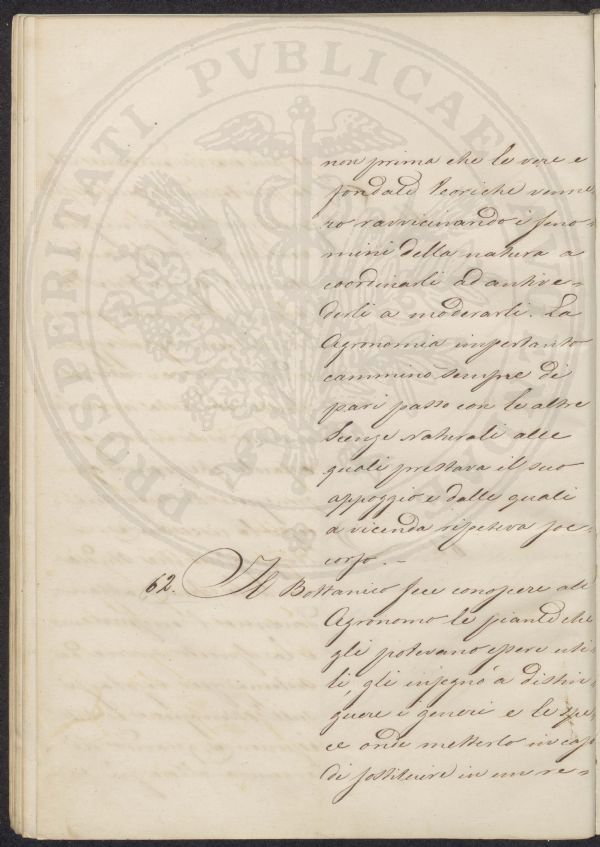 PROSPERITATI PVBLICAE
non prima che le vere e
fondate teoriche venne-
ro ravvicinando i feno-
mini della natura a
coordinarli ad antive-
derli a moderarli. La
Agronomia impertanto
camminò sempre di
pari passo con le altre
Scenze Naturali alle
quali prestava il suo
appoggio e dalle quali
a vicenda ripeteva soc-
corso. -
62. Il Bottanico fece conoscere all
Agronomo le piante che
gli potevano essere uti-
li, gli insegnò a distin-
guere i generi e le spe-
ce onde metterlo in caso
di sostituire in un re-